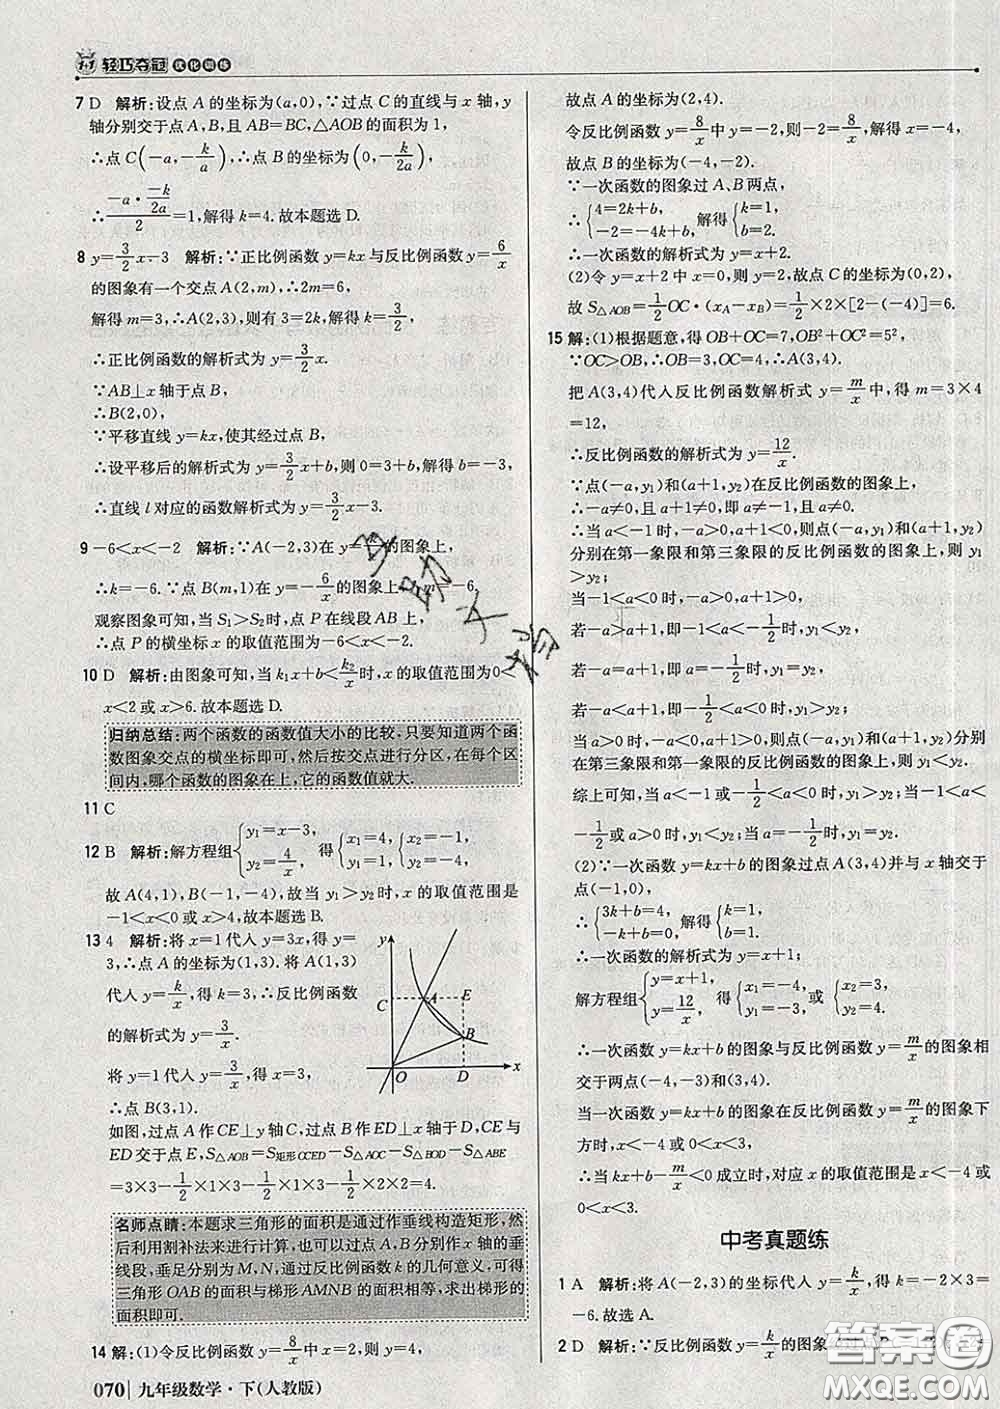 1+1 轻巧夺冠 优化训练
7 D 解析:设点 A 的坐标为(a,0),∵过点 C 的直线与 x 轴,y
轴分别交于点 A,B,且 AB=BC,△AOB 的面积为 1,
∴点 C(-a,-k/a),∴点 B 的坐标为(0,-k/2a),
∴(-a·(-k/2a))/2=1,解得 k=4.故本题选 D.
8 y=3/2x-3 解析:∵正比例函数 y=kx 与反比例函数 y=6/x
的图象有一个交点 A(2,m),∴2m=6,
解得 m=3,∴A(2,3),则有 3=2k,解得 k=3/2,
∴正比例函数的解析式为 y=3/2x.
∵AB⊥x 轴于点 B,
∴B(2,0),
∵平移直线 y=kx,使其经过点 B,
∴设平移后的解析式为 y=3/2x+b,则 0=3+b,解得 b=-3,
∴直线 l 对应的函数解析式为 y=3/2x-3.
9 -6<x<-2 解析:∵A(-2,3)在 y=的图象上,
∴k=-6.∵点 B(m,1)在 y=-6/x的图象上,∴m=-6,
观察图象可知,当 S₁>S₂时,点 P 在线段 AB 上,
∴点 P 的横坐标 x 的取值范围为-6<x<-2.
10 D 解析:由图象可知,当 k₁x+b<k₂/x时,x 的取值范围为0<
x<2 或 x>6.故本题选 D.
归纳总结:两个函数的函数值大小的比较,只要知道两个函
数图象交点的横坐标即可,然后按交点进行分区,在每个区
间内,哪个函数的图象在上,它的函数值就大.
11 C
12 B 解析:解方程组{y₁=x-3, y₂=4/x, 得{x₁=4, y₁=1, {x₂=-1, y₂=-4.
故 A(4,1),B(-1,-4),故当 y₁>y₂时,x 的取值范围是
-1<x<0 或 x>4,故本题选 B.
13 4 解析:将 x=1 代入 y=3x,得 y=
3,∴点 A 的坐标为(1,3).将 A(1,3)
代入 y=k/x,得 k=3,∴反比例函数
的解析式为 y=3/x.
将 y=1 代入 y=3/x,得 x=3,
∴点 B(3,1).
y
C A E
B
O D x
如图,过点 A 作 CE⊥y 轴于点 C,过点 B 作 ED⊥x 轴于点 D,CE 与
ED交于点 E,S△AOB=S矩形OCED-S△AOC-S△BOD-S△ABE
=3×3-1/2×1×3-1/2×1×3-1/2×2×2=4.
名师点睛:本题求三角形的面积是通过作垂线构造矩形,然
后利用割补法来进行计算,也可以过点 A,B 分别作 x 轴的垂
线段,垂足分别为 M,N,通过反比例函数 k 的几何意义,可得
三角形 OAB 的面积与梯形 AMNB 的面积相等,求出梯形的
面积即可.
14 解:(1)令反比例函数 y=8/x中 x=2,则 y=4,
070 九年级数学·下(人教版)
故点 A 的坐标为(2,4).
令反比例函数 y=8/x中 y=-2,则-2=8/x,解得 x=-4,
故点 B 的坐标为(-4,-2).
∵一次函数的图象过 A,B 两点,
∴{4=2k+b, -2=-4k+b, 解得{k=1, b=2.
∴一次函数的解析式为 y=x+2.
(2)令 y=x+2 中 x=0,则 y=2,故点 C 的坐标为(0,2),
故 S△AOB=1/2OC·(xA-xB)=1/2×2×[2-(-4)]=6.
15 解:(1)根据题意,得 OB+OC=7,OB²+OC²=5²,
∵OC>OB,∴OB=3,OC=4,∴A(3,4).
把 A(3,4)代入反比例函数解析式 y=m/x中,得 m=3×4
=12,
∴反比例函数的解析式为 y=12/x.
∵点(-a,y₁)和(a+1,y₂)在反比例函数的图象上,
∴-a≠0,且 a+1≠0,即 a≠-1,且 a≠0,
∴当 a<-1 时,-a>0,a+1<0,则点(-a,y₁)和(a+1,y₂)
分别在第一象限和第三象限的反比例函数的图象上,则 y₁
>y₂;
当-1<a<0 时,-a>0,a+1>0,
若-a>a+1,即-1<a<-1/2时,y₁<y₂,
若-a=a+1,即 a=-1/2时,y₁=y₂,
若-a<a+1,即-1/2<a<0 时,y₁>y₂;
当 a>0 时,-a<0,a+1>0,∴点(-a,y₁)和(a+1,y₂)分别
在第三象限和第一象限的反比例函数的图象上,则 y₁<y₂.
综上可知,当 a<-1 或-1/2<a<0 时,y₁>y₂;当-1<a<
-1/2或 a>0 时,y₁<y₂;当 a=-1/2时,y₁=y₂.
(2)∵一次函数 y=kx+b 的图象过点 A(3,4)并与 x 轴交于
点(-1,0),
∴{3k+b=4, -k+b=0, 解得{k=1, b=1.
∴一次函数的解析式为 y=x+1;
解方程组{y=x+1, y=12/x, 得{x₁=-4, y₁=-3, 或{x₂=3, y₂=4.
∴一次函数 y=kx+b 的图象与反比例函数 y=m/x的图象相
交于两点(-4,-3)和(3,4).
当一次函数 y=kx+b 的图象在反比例函数 y=m/x的图象下
方时,x<-4 或 0<x<3,
∴当 kx+b-m/x<0 成立时,对应 x 的取值范围是 x<-4 或
0<x<3.
中考真题练
1 A 解析:将 A(-2,3)的坐标代入 y=k/x,得 k=-2×3=
-6.故选 A.
2 D 解析:∵反比例函数 y=k/x的图象
答案圈
MXQE.COM